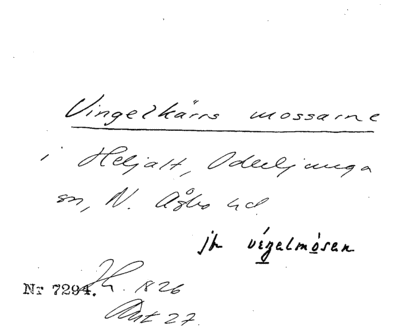 Vingelkärrs mossarne
i Heljalt, Oderljunga
sn, N. Åsbo hd.
jfr vígelmósen
Nr 7294. Jh. 1826
Akt 27.